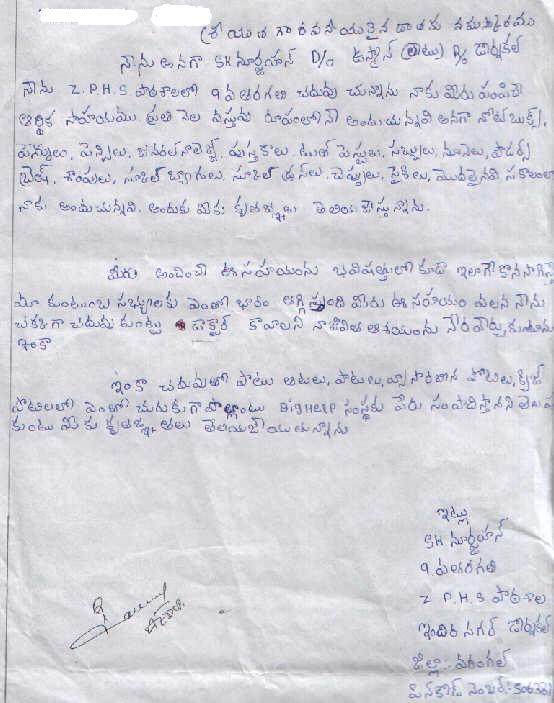 శ్రీయుత గౌరవనీయులైన దాతకు నమస్కారము
నేను అనగా SK నూర్జహన్ D/o ఉస్మాన్ (లేటు) R/o డోర్నకల్
నేను Z.P.H.S పాఠశాలలో 9వ తరగతి చదువు చున్నాను నాకు మీరు పంపించే
ఆర్థిక సహాయము ప్రతి నెల వస్తువు రూపంలోనే అందుచున్నవి అనగా నోటుబుక్స్,
పెన్నులు, పెన్సిలు, జనరల్ నాలెడ్జి, పుస్తకాలు టూత్ పేస్టులు, సబ్బులు, నూనెలు, పౌడర్స్
బ్రెష్, శాంపులు, స్కూల్ బ్యాగులు, స్కూల్ డ్రస్‌లు, చెప్పులు, సైకిలు, మొదలైనవి సకాలంలో
నాకు అందుచున్నవి. అందుకు మీకు కృతజ్ఞతలు తెలియజేస్తున్నాను.
మీరు అందించే ఈ సహయంను భవిషత్తులో కూడా ఇలాగే కొనసాగిస్తే
మా కుటుంబ సభ్యులకు ఎంతో భారం తగ్గి తుంది మీరు ఈ సహయం వలన నేను
చక్కగా చదువు కుంటు డాక్టర్ కావాలని నా జీవిత ఆశయంను నేరవేర్చుకుంటాను
ఇంకా
ఇంకా చదువుతో పాటు ఆటలు, పాటలు, వ్యాసారచన పోటీలు, క్విజ్
పోటీలలో ఎంతో చురుకుగా పాల్గొంటు BIGHELP సంస్థకు పేరు సంపాదిస్తానని తెలుపు
కుంటు మీకు కృతజ్ఞతలు తెలియజేయుచున్నాను
ఇట్లు
SK నూర్జహన్
9వ తరగతి
Z.P.H.S పాఠశాల
ఇందిర నగర్ డోర్నకల్
జిల్లా:- వరంగల్
పిన్‌కోడ్ నెంబర్:-